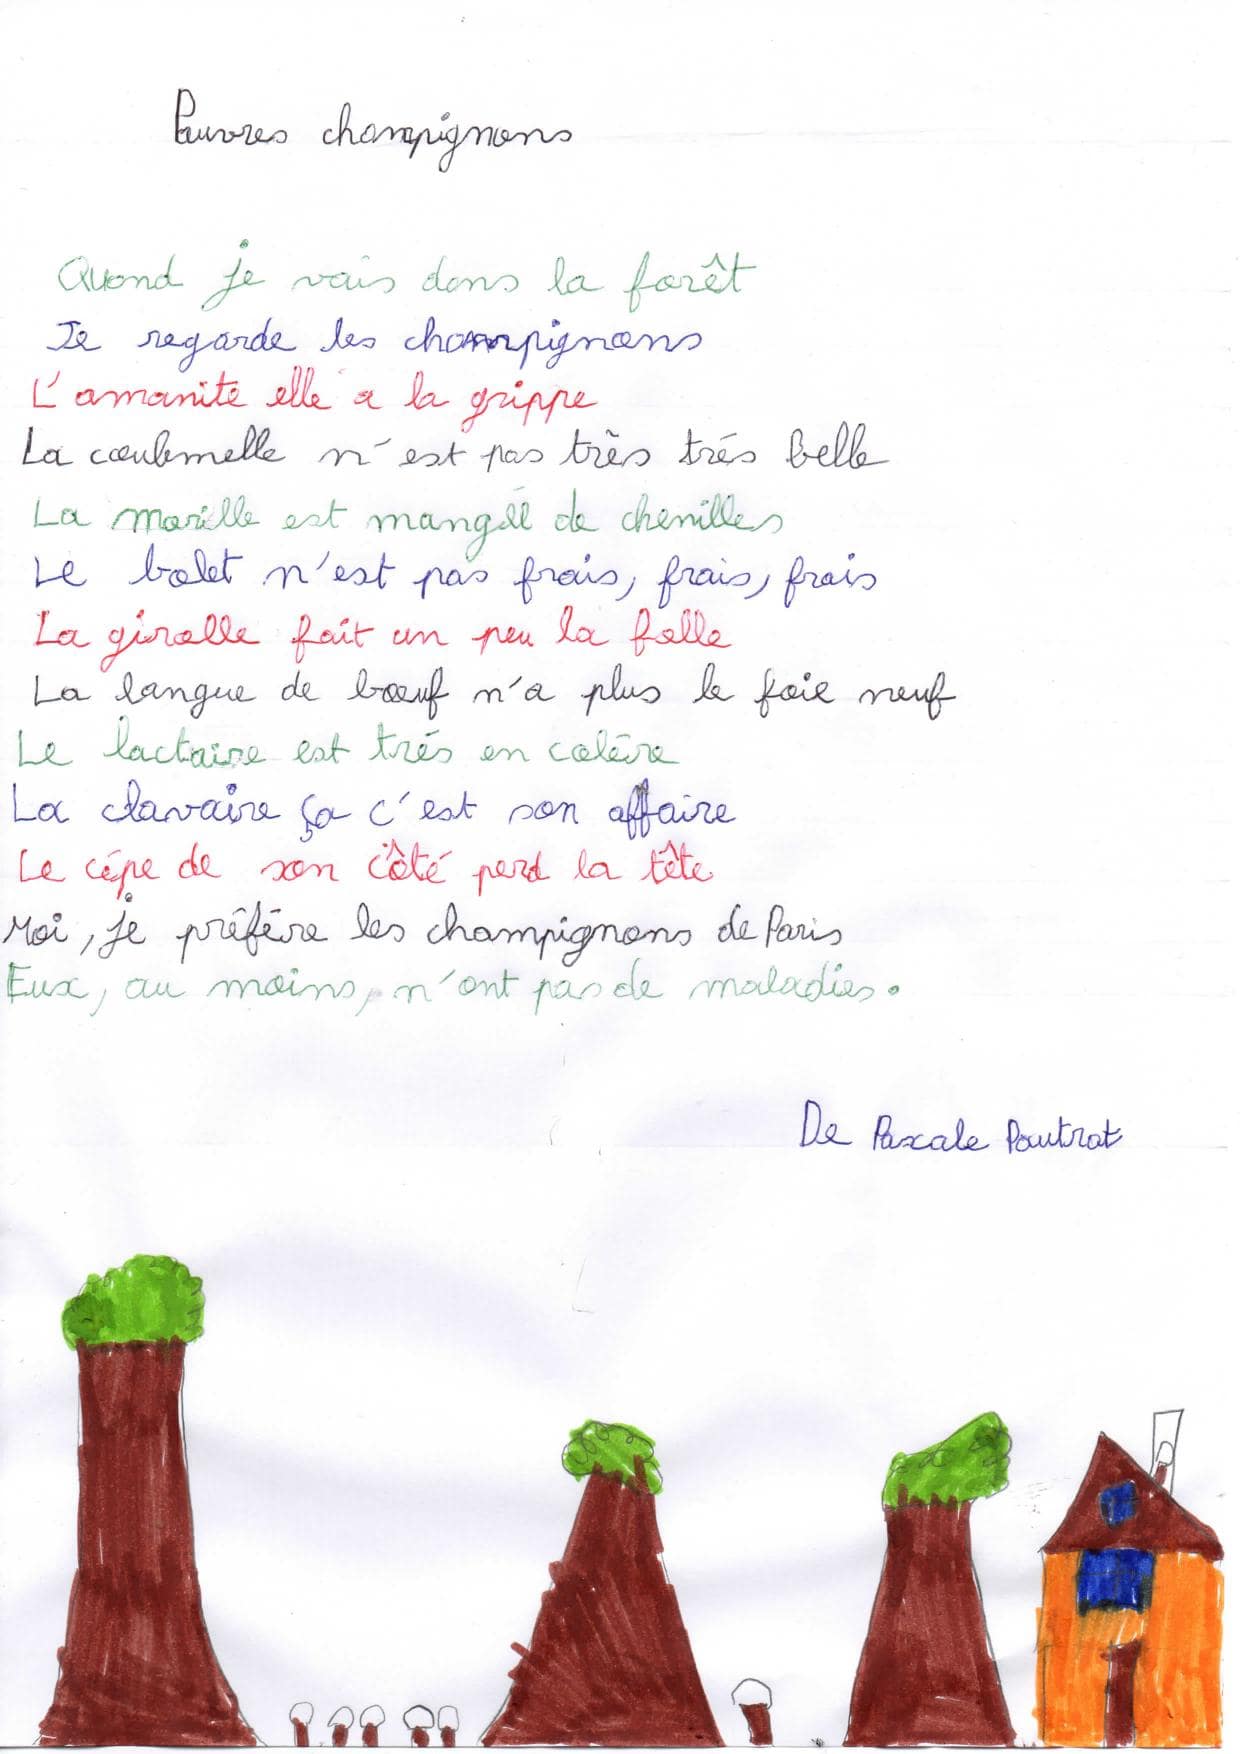 Pauvres champignons
Quand je vais dans la forêt
Je regarde les champignons
L'amanite elle a la grippe
La coulemelle n'est pas très trés belle
La morille est mangéé de chenilles
Le bolet n'est pas frais, frais, frais
La girolle fait un peu la folle
La langue de bœuf n'a plus le foie neuf
Le lactaire est trés en colére
La clavaire ça c'est son affaire
Le cépe de son côté perd la tête
Moi, je préfére les champignons de Paris
Eux, au moins, n'ont pas de maladies.
De Pascale Pautrat